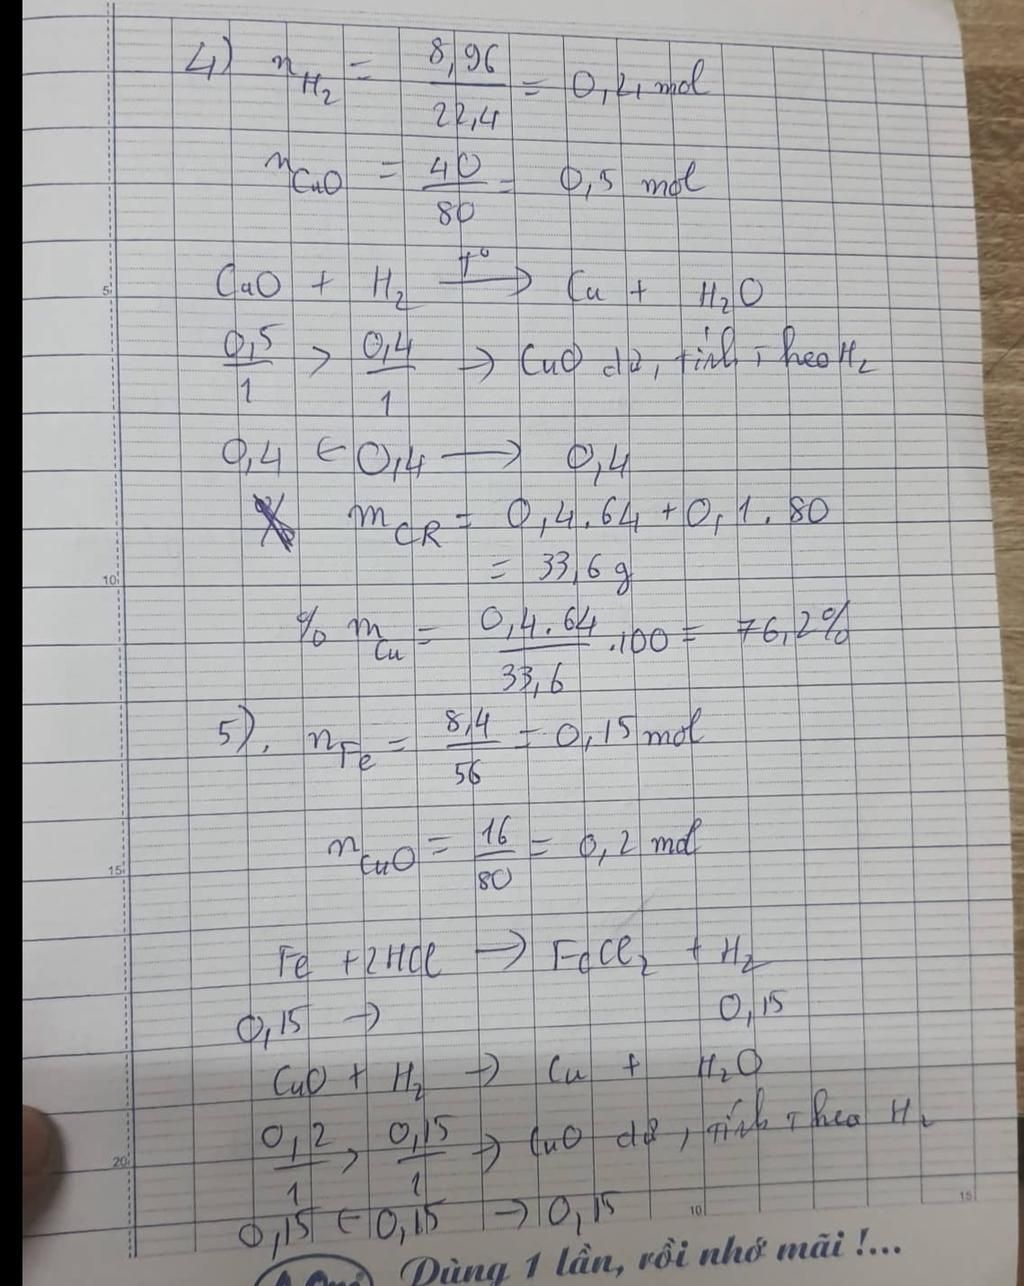 4) n_H₂ = 8,96/22,4 = 0,4 mol
n_CuO = 40/80 = 0,5 mol
5
CuO + H₂ —T°→ Cu + H₂O
0,5/1 > 0,4/1 → CuO dư, tính theo H₂
0,4 ← 0,4 → 0,4
m_CR = 0,4.64 + 0,1.80
10
= 33,6 g
% m_Cu = 0,4.64/33,6 .100 = 76,2%
5). n_Fe = 8,4/56 = 0,15 mol
n_CuO = 16/80 = 0,2 mol
15
Fe + 2HCl → FeCl₂ + H₂
0,15 → 0,15
CuO + H₂ → Cu + H₂O
0,2/1 > 0,15/1 → CuO dư, tính theo H₂
20
0,15 ← 0,15 → 0,15
10 15
Dùng 1 lần, rồi nhớ mãi !...